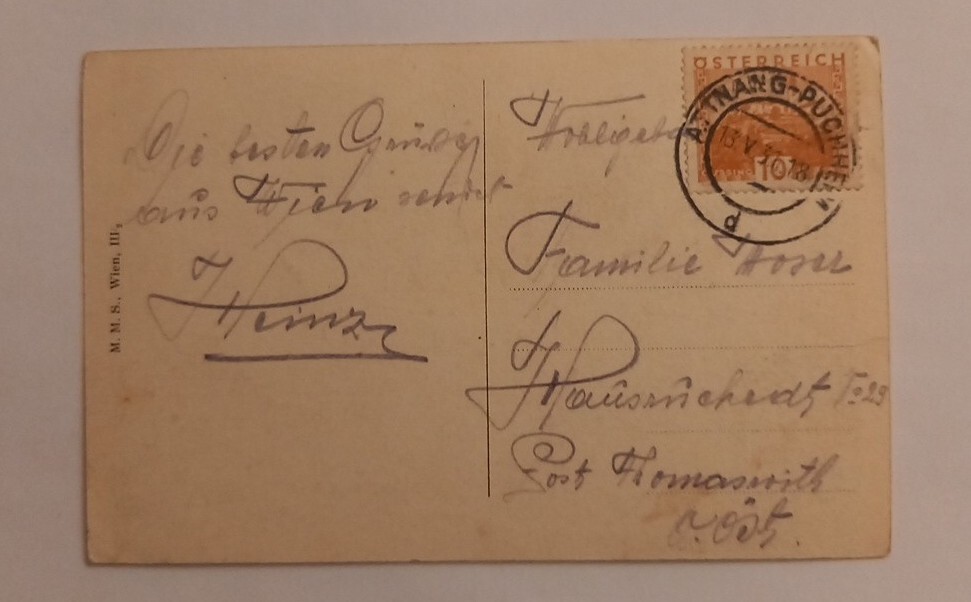 Die besten Grüße
aus Wien sendet
Heinz
M. M. S., Wien, III/2
ÖSTERREICH
10
ATTNANG-PUCHHEIM
13.V.
18
d
Familie Hoser
Hausruckedt No 29
Post Thomasroith
O. Öst.